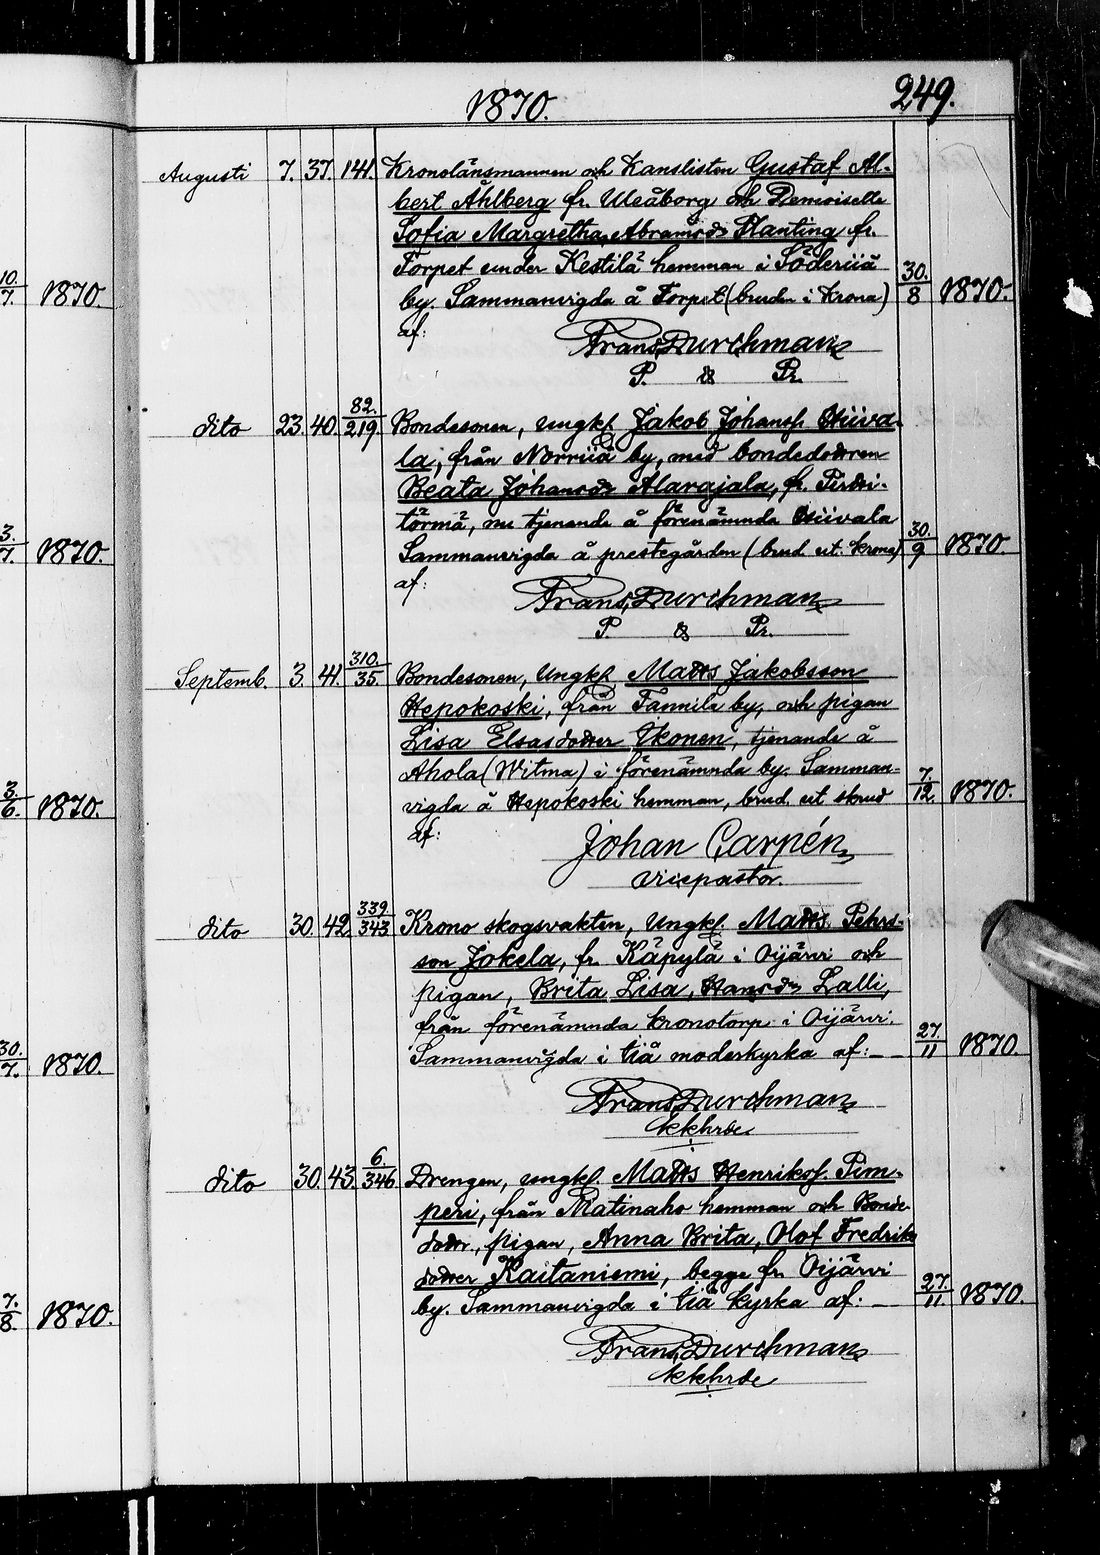 1870.
249.
Augusti 7. 37. 141. Kronolänsmannen och Kanslisten Gustaf Al-
bert Åhlberg fr. Uleåborg och Demoiselle
Sofia Margretha Abramsdr Planting fr.
Torpet under Kestilä hemman i Söderiiå
by. Sammanvigda å Torpet (bruden i Krona) 30./8 1870.
af:
Frans Durchman
P. & Pr.
dito 23. 40. 82./219. Bondesonen, ungkl. Jakob Johanss. Hiiva-
la, från Norriiå by, med bondedottren
Beata Johansdr Alarajala, fr.
törmä, nu tjenande å förenämnda Hiivala
Sammanvigda å prestegården (brud. ut. krona) 30./9 1870.
af:
Frans Durchman
P. & Pr.
Septemb. 3. 41. 310./35. Bondesonen, Ungkl. Matts Jakobsson
Hepokoski, från Tannila by, och pigan
Lisa Elsasdotter Ukonen, tjenande å
Ahola (Witma) i förenämnda by. Samman-
vigda å Hepokoski hemman, brud. ut skrud 7./12. 1870.
af:
Johan Carpén
vicepastor.
dito 30. 42. 339./343 Krono skogsvakten, Ungkl. Matts Pehrs-
son Jokela, fr. Käpylä i Oijärvi och
pigan, Brita Lisa, Hansdr Lalli,
från förenämnda kronotorp i Oijärvi.
Sammanvigda i Iiå moderkyrka af: 27./11 1870.
Frans Durchman
kkhrde.
dito 30. 43. 6./346 Drengen, ungkl. Matts Henrikss. Pim-
peri, från Matinaho hemman och Bonde-
dottr., pigan, Anna Brita, Olof Fredriks
dotter Kaitaniemi, begge fr. Oijärvi
by. Sammanvigda i Iiå kyrka af: 27./11. 1870.
Frans Durchman
kkhrde
10./7. 1870.
3./7. 1870.
3./6. 1870.
30./7. 1870.
7./8. 1870.